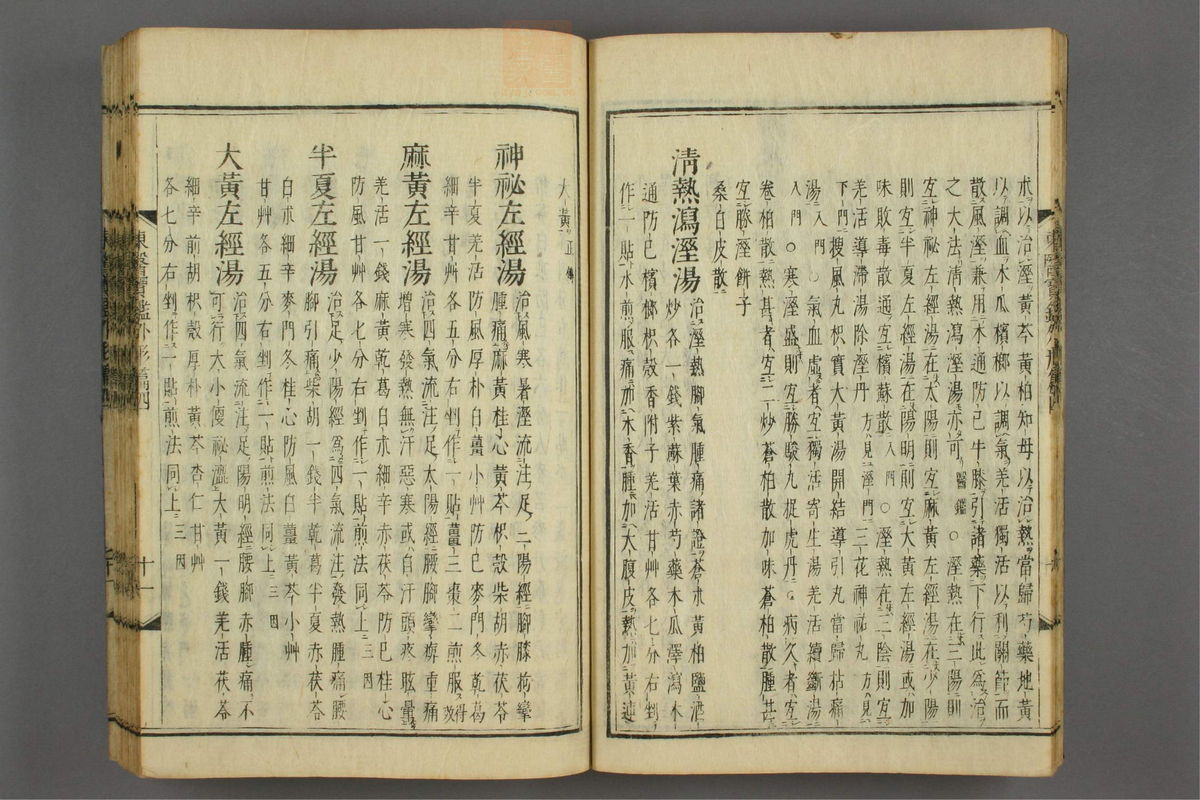 朮以治溼黃芩黃柏知母以治熱當歸芍藥地黃
以調血木瓜檳榔以調氣羌活獨活以利關節而
散風溼兼用木通防己牛膝引諸藥下行此爲治
之大法淸熱瀉溼湯亦可醫鑑○溼熱在三陽則
宜神祕左經湯在太陽則宜麻黃左經湯在少陽
則宜半夏左經湯在陽明則宜大黃左經湯或加
味敗毒散通宜檳蘇散入門○溼熱在三陰則宜
羌活導滯湯除溼丹方見溼門三花神祐丸方見
下門搜風丸枳實大黃湯開結導引丸當歸拈痛
湯入門○氣血虛者宜獨活寄生湯羌活續斷湯
入門○寒溼盛則宜勝駿丸捉虎丹○病久者宜
卷柏散熱甚者宜二炒蒼柏散加味蒼柏散腫甚
宜勝溼餠子
桑白皮散
淸熱瀉溼湯 治溼熱腳氣腫痛諸證蒼朮黃柏鹽酒
炒各一錢紫蘇葉赤芍藥木瓜澤瀉木
通防己檳榔枳殼香附子羌活甘艸各七分右剉
作一貼水煎服痛加木香腫加大腹皮熱加黃連
大黃 正傳
神祕左經湯 治風寒暑溼流注足三陽經腳膝拘攣
腫痛麻黃桂心黃芩枳殼柴胡赤茯苓
半夏羌活防風厚朴白薑小艸防己麥門冬乾葛
細辛甘艸各五分右剉作一貼薑三棗二煎服得效
麻黃左經湯 治四氣流注足太陽經腰腳攣痺重痛
增寒發熱無汗惡寒或自汗頭疼眩暈
羌活一錢麻黃乾葛白朮細辛赤茯苓防己桂心
防風甘艸各七分右剉作一貼煎法同上三因
半夏左經湯 治足少陽經爲四氣流注發熱腫痛腰
腳引痛柴胡一錢半乾葛半夏赤茯苓
白朮細辛麥門冬桂心防風白薑黃芩小艸
甘艸各五分右剉作一貼煎法同上三因
大黃左經湯 治四氣流注足陽明經腰腳赤腫痛不
可行大小便祕澁大黃一錢羌活茯苓
細辛前胡枳殼厚朴黃芩杏仁甘艸
各七分右剉作一貼煎法同上三因
東醫寶鑑外形篇四
十一